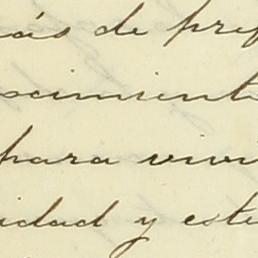 ás de pref
ocimient
para vivi
idad y estu